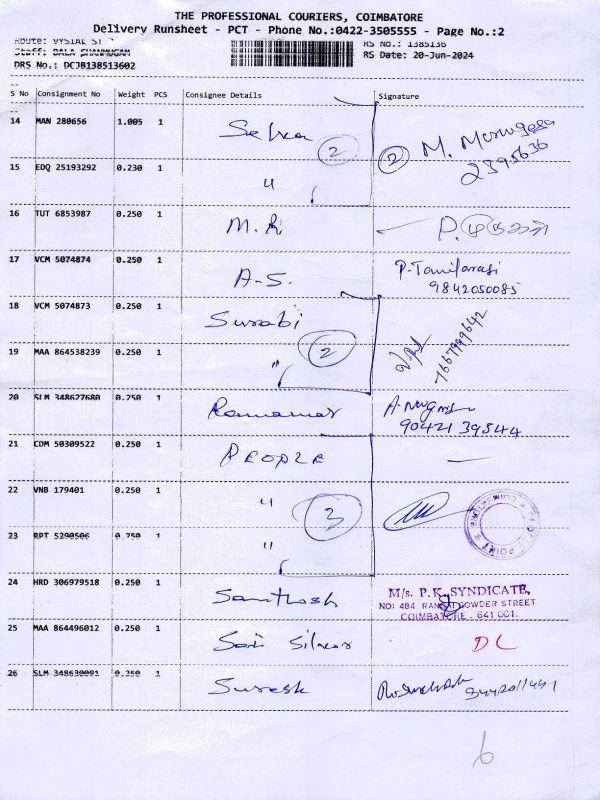 THE PROFESSIONAL COURIERS, COIMBATORE
Delivery Runsheet - PCT - Phone No.:0422-3505555 - Page No.:2
Route: VYSIAL ST
Staff: BALA SHANMUGAM
RS No.: 1385136
DRS No.: DCJB138513602
RS Date: 20-Jun-2024
S No Consignment No Weight PCS Consignee Details Signature
14 MAN 280656 1.005 1 Selva 2 2 M. Murugesa
15 EDQ 25193292 0.230 1 "
16 TUT 6853987 0.250 1 M.R P.முருகன்
17 VCM 5074874 0.250 1 A-S. P.Tamilarasi
9842050085
18 VCM 5074873 0.250 1 Surabi
19 MAA 864538239 0.250 1 " 2
20 SLM 348627680 0.250 1 Ramamar
90421 39544
21 CDM 50309522 0.250 1 PEOPLE —
22 VNB 179401 0.250 1 " 3
23 RPT 5290506 0.250 1 "
24 HRD 306979518 0.250 1 Santhosh M/s. P.K. SYNDICATE,
NO: 484 RANGAI GOWDER STREET
COIMBATORE - 641 001.
25 MAA 864496012 0.250 1 Sai Silver DL
26 SLM 348630091 0.250 1 Suresh
6